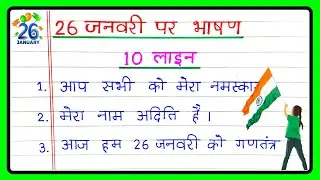 26
JANUARY
26 जनवरी पर भाषण
10 लाइन
1. आप सभी को मेरा नमस्कार
2. मेरा नाम अदिति है।
3. आज हम 26 जनवरी को गणतंत्र